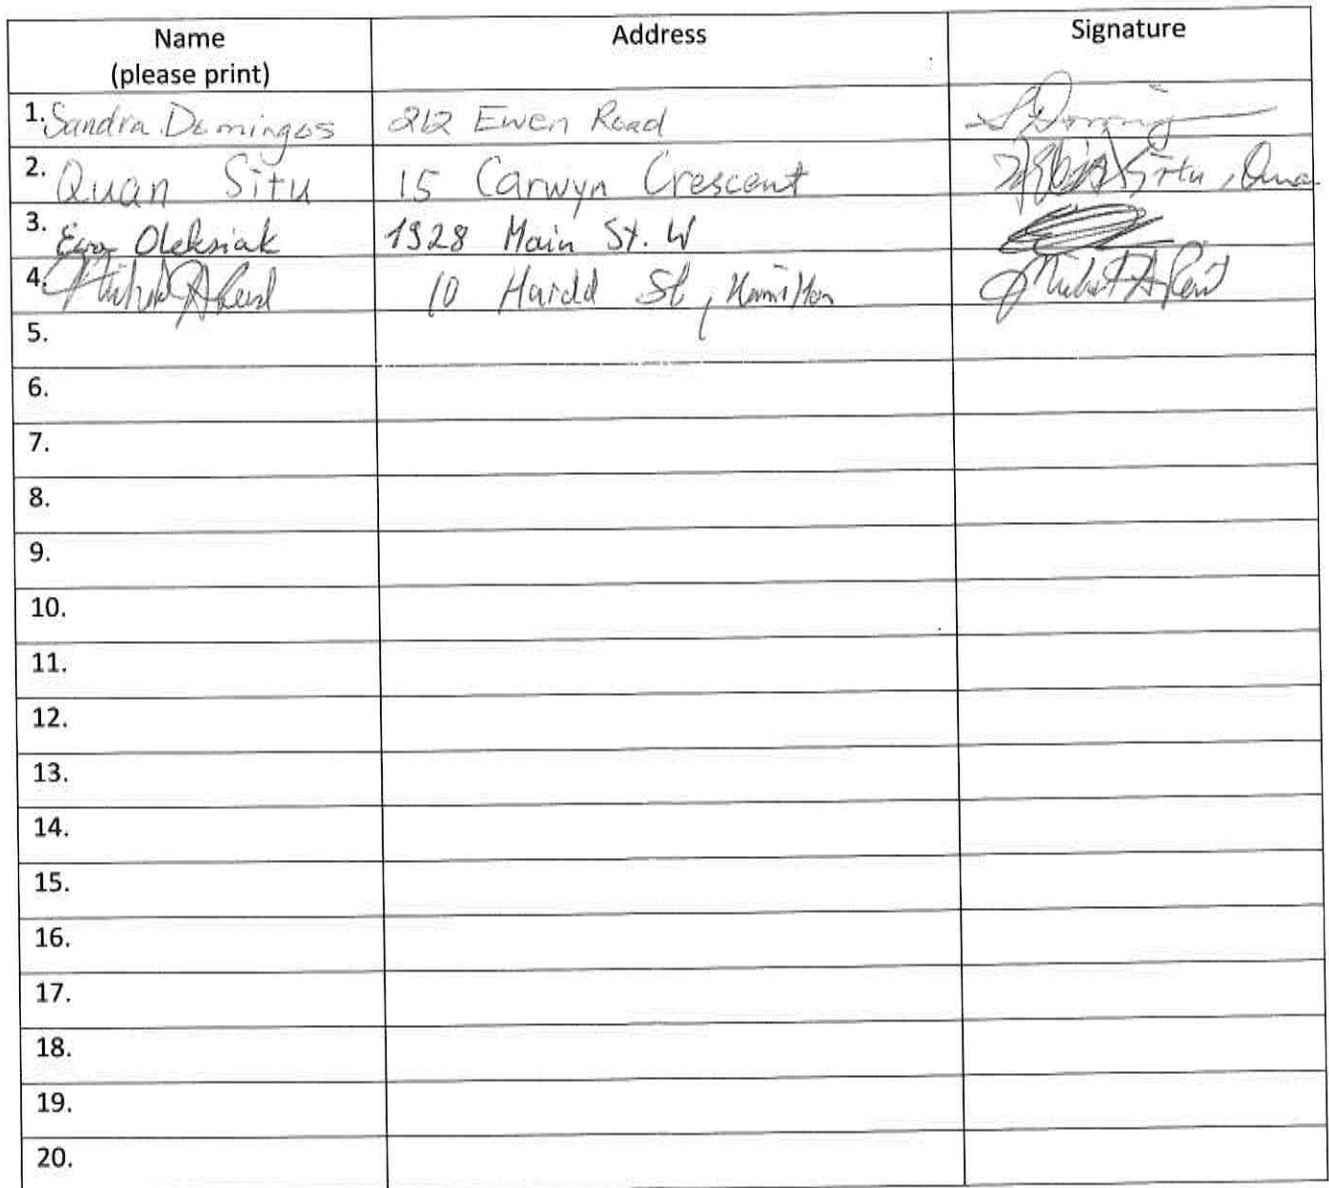 Name Address Signature
(please print)
1. Sandra Domingos 212 Ewen Road
2. Quan Situ 15 Carwyn Crescent Situ, Quan
3. Ewa Oleksiak 1928 Main St. W
4. 10 Harold St, Hamilton
5.
6.
7.
8.
9.
10.
11.
12.
13.
14.
15.
16.
17.
18.
19.
20.